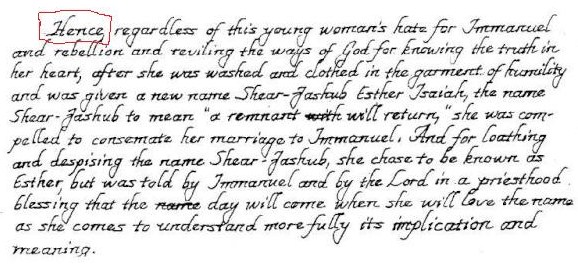 Hence, regardless of this young woman's hate for Immanuel
and rebellion and reviling the ways of God for knowing the truth in
her heart, after she was washed and clothed in the garment of humility
and was given a new name Shear-Jashub Esther Isaiah, the name
Shear-Jashub to mean "a remnant with will return," she was com-
pelled to consemate her marriage to Immanuel. And for loathing
and despising the name Shear-Jashub, she chose to be known as
Esther, but was told by Immanuel and by the Lord in a priesthood
blessing that the name day will come when she will love the name
as she comes to understand more fully its implication and
meaning.